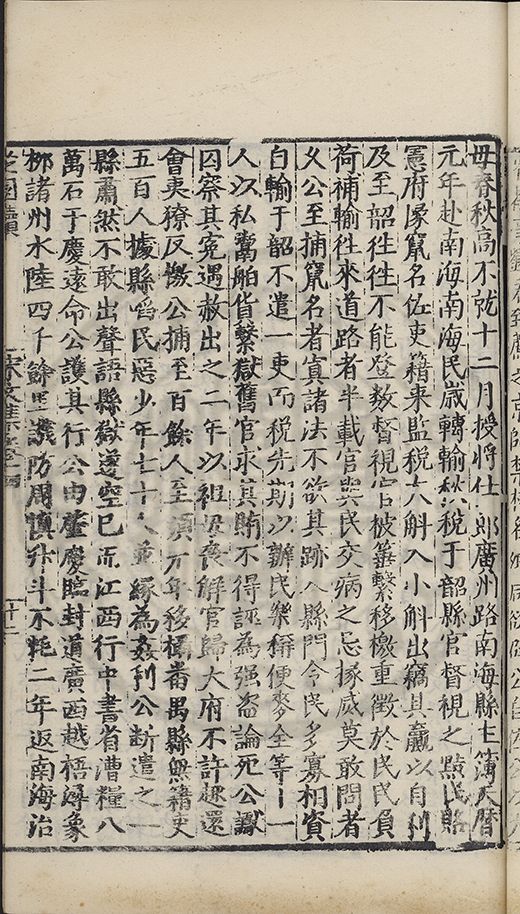 毋春秋高不就十二月授將仕郎廣州路南海縣主簿天曆
元年赴南海南海民歲轉輸秋稅于韶縣官督視之點民賂
憲府掾竄名佐吏籍來監稅大斛入小斛出竊其贏以自利
及至韶往往不能登數督視官被箠繫移檄重徵於民民負
荷補輸徃來道路者半載官與民交病之忌掾威莫敢問者
乆公至捕竄名者寘諸法不欲其跡入縣門令民多寡相資
白輸于韶不遣一吏而稅先期以辦民樂稱便麥全等十一
人以私鬻舶貨繫獄舊官求其賄不得誣為强盗論死公讞
囚察其寃遇赦出之二年以祖母喪解官歸大府不許趣還
會夷獠反檄公捕至百餘人至順元年移攝番禺縣無籍吏
五百人據縣㗖民惡少年七十人並緣為姦利公斷遣之一
縣肅然不敢出聲語縣獄遂空巳而江西行中書省漕糧八
萬石于慶遠命公護其行公由肇慶臨封道廣西越梧潯象
柳諸州水陸四千餘里護防周愼升斗不耗二年返南海治